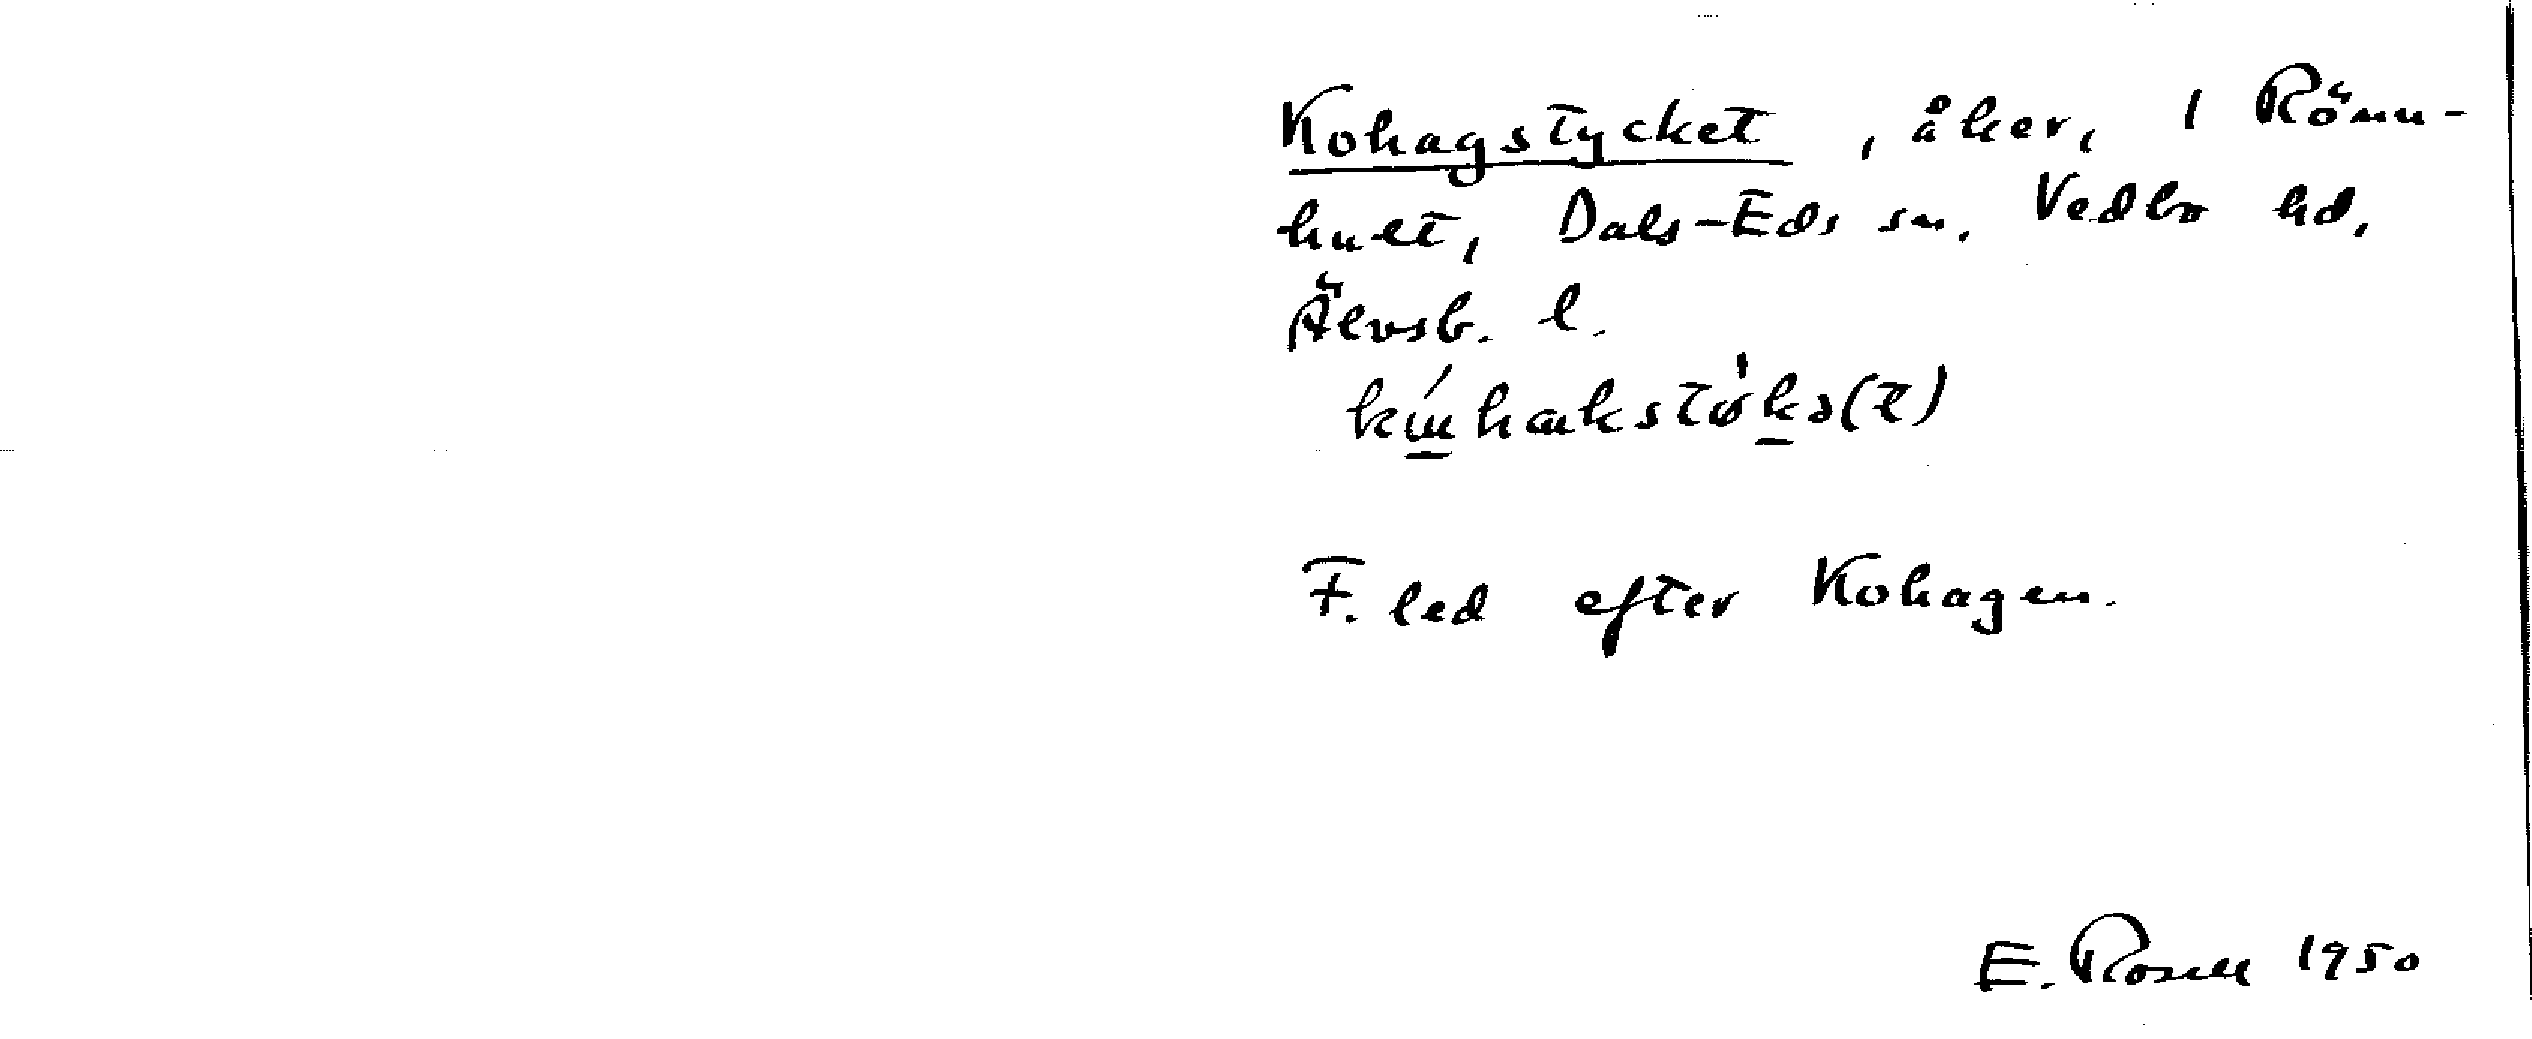 Kohagstycket, åker, 1 Rönn-
hult, Dals-Eds sn. Vedbo hd,
Älvsb. l.
F. led efter Kohagen.
E. Rosell 1950